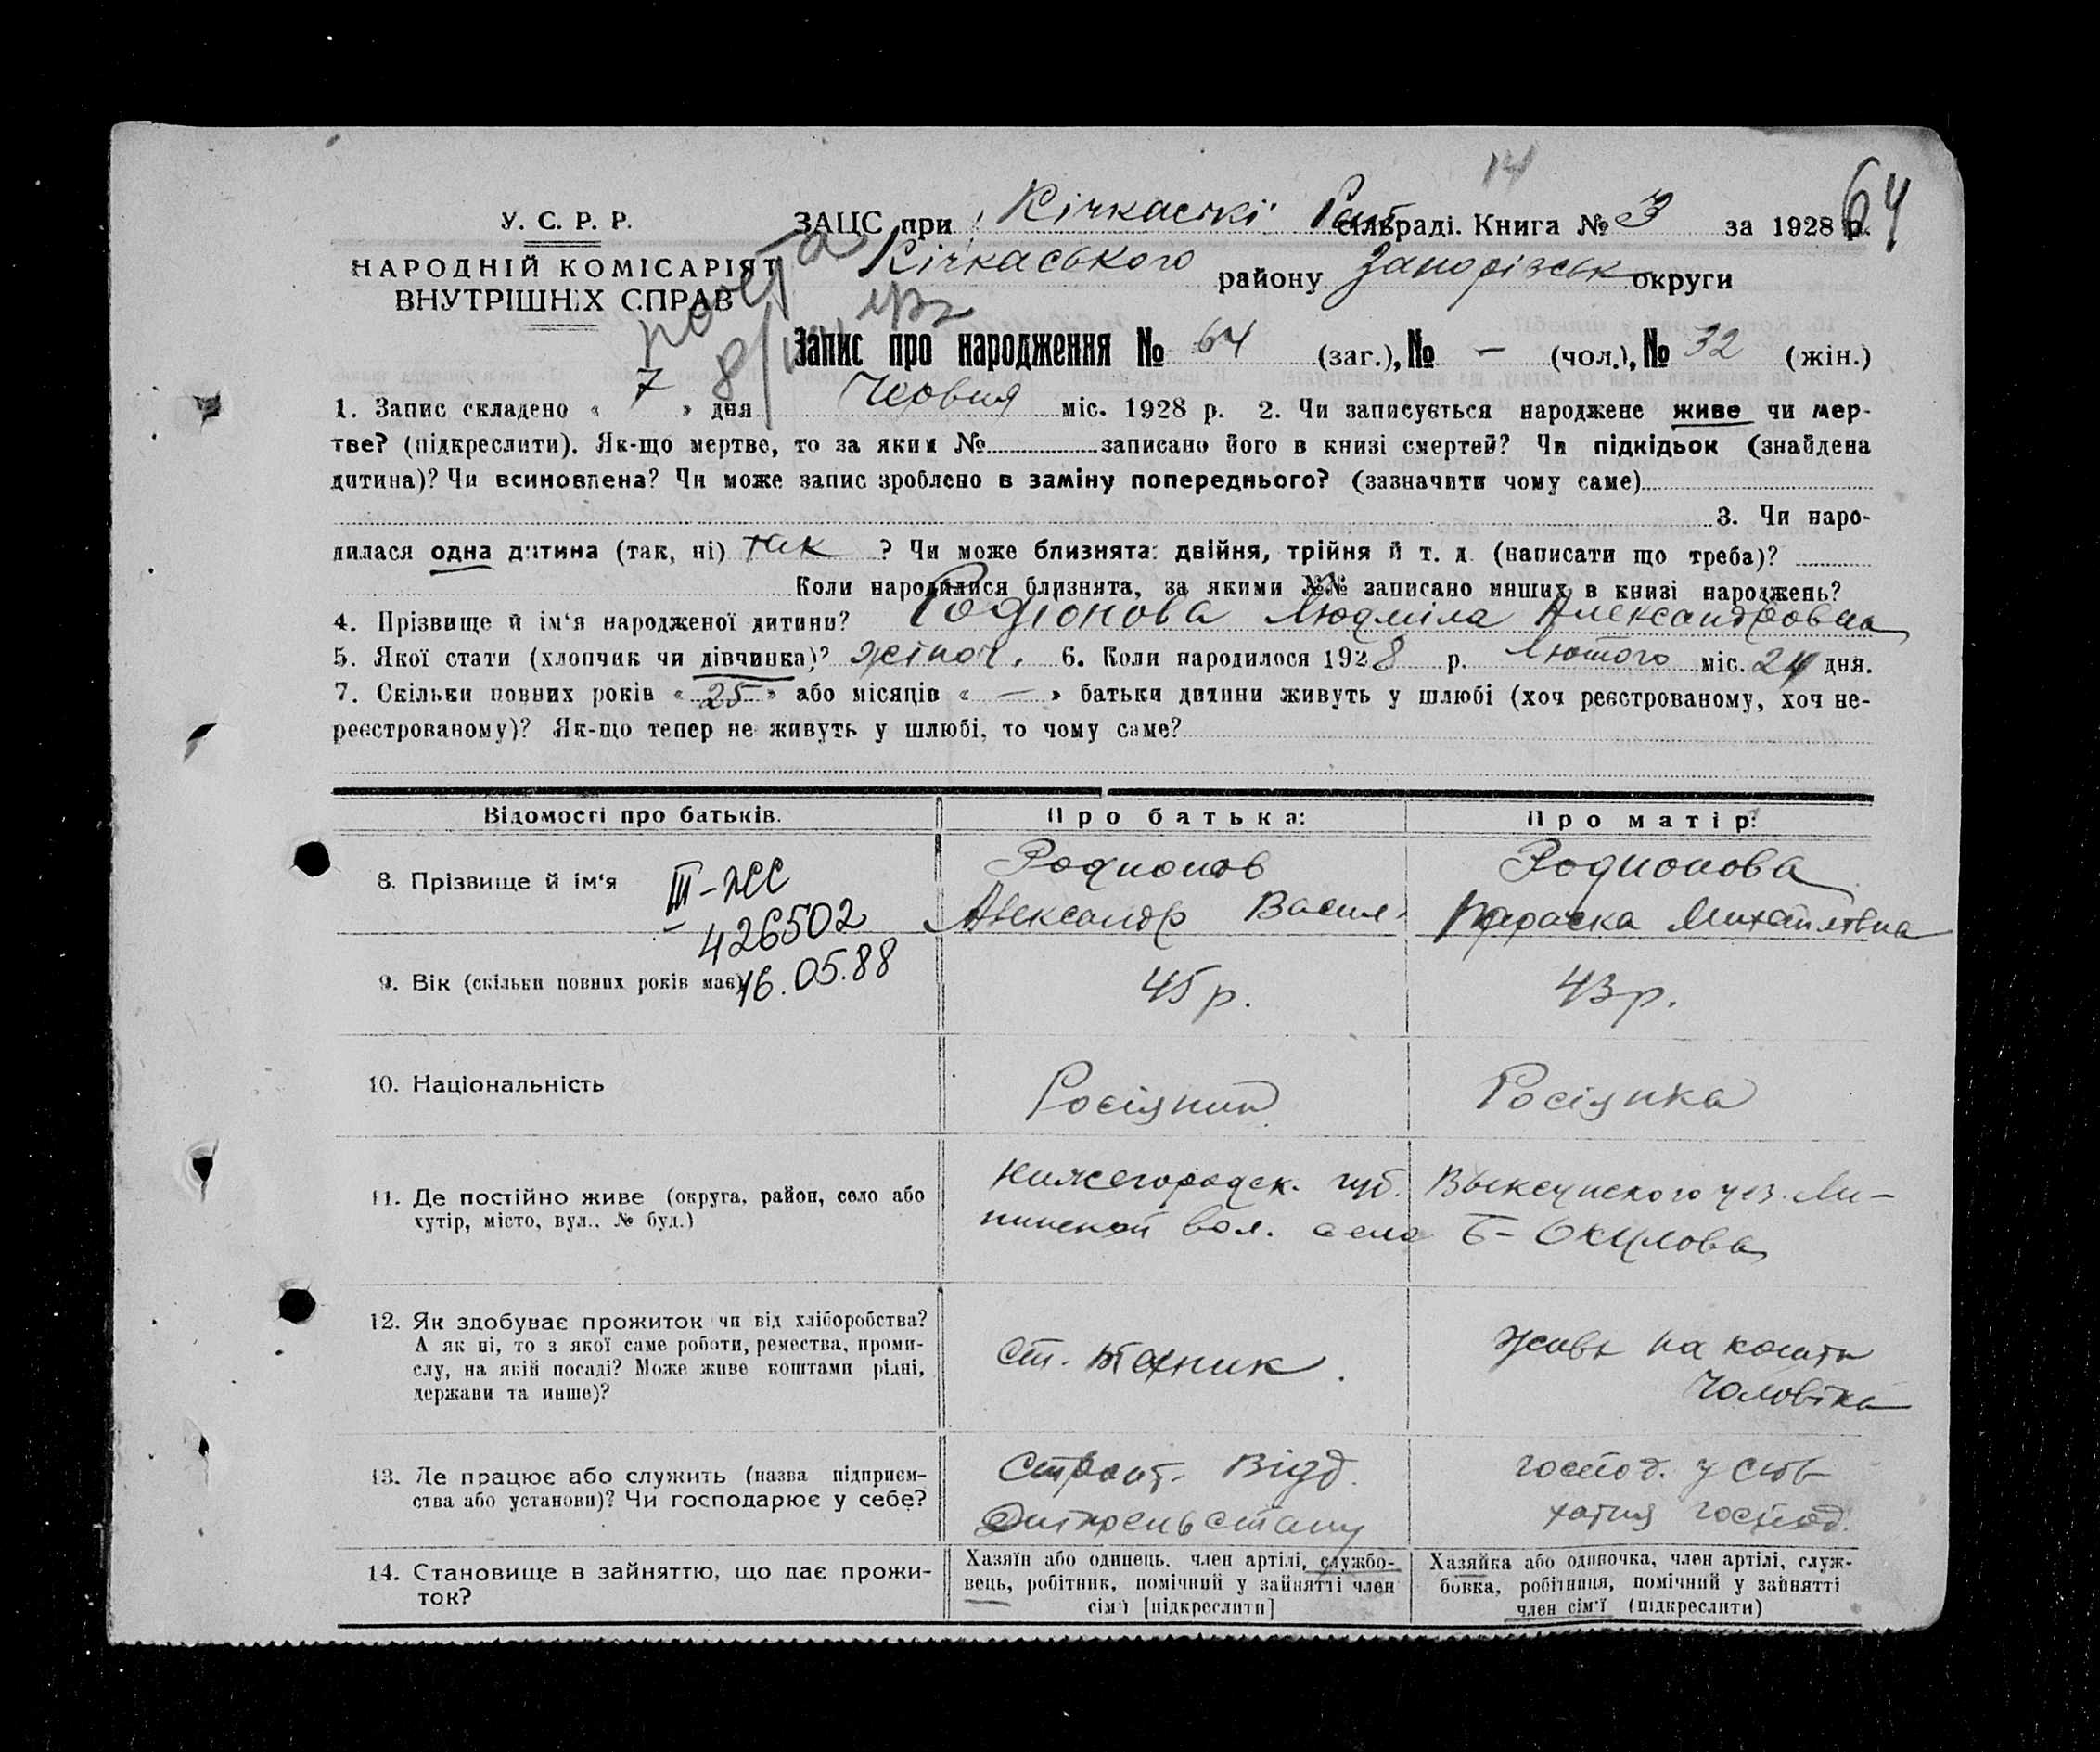 14
64
У. С. Р. Р.
НАРОДНІЙ КОМІСАРІЯТ
ВНУТРІШНІХ СПРАВ
ЗАЦС при Кічкаські сільраді. Книга № 3 за 1928 р.
Кічкаського району Запорізськ округи
Запис про народження № 64 (заг.), № — (чол.), № 32 (жін.)
1. Запис складено « 7 » дня Червня міс. 1928 р. 2. Чи записується народжене живе чи мер-
тве? (підкреслити). Як-що мертве, то за яким № записано його в книзі смертей? Чи підкідьок (знайдена
дитина)? Чи всиновлена? Чи може запис зроблено в заміну попереднього? (зазначити чому саме)
3. Чи наро-
дилася одна дитина (так, ні) так ? Чи може близнята: двійня, трійня й т. д. (написати що треба)?
Коли народилися близнята, за якими №№ записано инших в книзі народжень?
4. Прізвище й ім'я народженої дитини? Родіонова Людміла Александровна
5. Якої стати (хлопчик чи дівчинка)? жіноч. 6. Коли народилося 1928 р. Лютого міс. 24 дня.
7. Скільки повних років « 25 » або місяців « — » батьки дитини живуть у шлюбі (хоч реєстрованому, хоч не-
реєстрованому)? Як-що тепер не живуть у шлюбі, то чому саме?
Відомості про батьків.
Про батька:
Про матір:
8. Прізвище й ім'я
III-ЖС
426502
16.05.88
Родионов
Александр Васил.
Родионова
Параска Михайлівна
9. Вік (скільки повних років має)
45 р.
43 р.
10. Національність
Росіянин
Росіянка
11. Де постійно живе (округа, район, село або
хутір, місто, вул., № буд.)
Нижегородск. губ. Выксунского уез. Ли-
пинской вол. села Б-Окулова
12. Як здобуває прожиток чи від хліборобства?
А як ні, то з якої саме роботи, ремества, проми-
слу, на якій посаді? Може живе коштами рідні,
держави та инше)?
Ст. техник.
живе на кошти
чоловіка
13. Де працює або служить (назва підприєм-
ства або установи)? Чи господарює у себе?
Відд.
господ. у
хатня господ.
14. Становище в зайняттю, що дає прожи-
ток?
Хазяїн або одинець, член артілі, службо-
вець, робітник, помічний у зайнятті член
сім'ї [підкреслити]
Хазяйка або одиночка, член артілі, служ-
бовка, робітниця, помічний у зайнятті
член сім'ї (підкреслити)